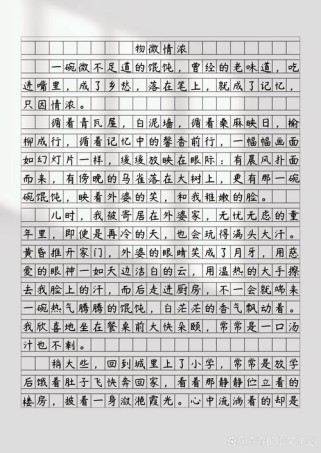 物微情浓
一碗微不足道的馄饨，曾经的老味道，吃
进嘴里，成了乡愁，落在笔上，就成了记忆，
只因情浓。
循着青瓦屋，白泥墙，循着桑麻映日，榆
柳成行，循着记忆中的馨香前行，一幅幅画面
如幻灯片一样，缓缓放映在眼际：有晨风扑面
而来，有傍晚的乌雀落在大树上，更有那一碗
碗馄饨，映着外婆的笑，和我稚嫩的脸。
儿时，我被寄居在外婆家，无忧无虑的童
年里，即使是再冷的天，也会玩得满头大汗。
黄昏推开家门，外婆的眼睛笑成了月牙，用慈
爱的眼神一如天边洁白的云，用温热的大手擦
去我脸上的汗，而后走进厨房，不一会就端来
一碗热气腾腾的馄饨，白茫茫的香气飘动着。
我欣喜地坐在餐桌前大快朵颐，常常是一口汤
汁也不剩。
稍大些，回到城里上了小学，常常是放学
后饿着肚子飞快奔回家，看着那静静伫立着的
楼房，披着一身潋滟霞光。心中流淌着的却是